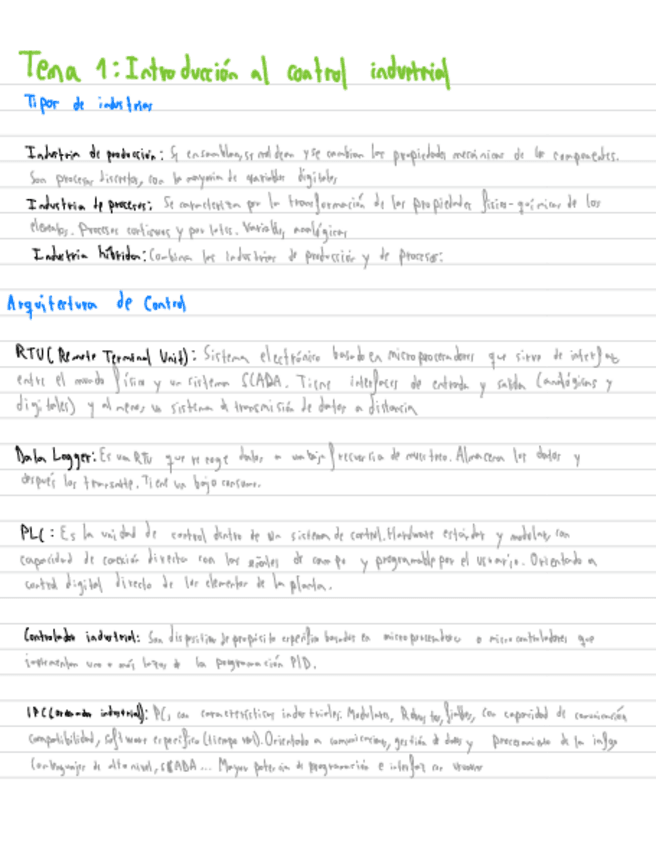 Tema 1: Introducción al control industrial
Tipos de industrias
Industria de producción: Se ensamblan, se moldean y se cambian las propiedades mecánicas de los componentes.
Son procesos discretos, con la mayoría de variables digitales
Industria de procesos: Se caracteriza por la transformación de las propiedades físico-químicas de los
elementos. Procesos continuos y por lotes. Variables analógicas
Industria híbrida: Combina las industrias de producción y de procesos.
Arquitectura de Control
RTU (Remote Terminal Unit): Sistema electrónico basado en microprocesadores que sirve de interfaz
entre el mundo físico y un sistema SCADA. Tiene interfaces de entrada y salida (analógicas y
digitales) y al menos un sistema de transmisión de datos a distancia
Data Logger: Es un RTU que recoge datos a una baja frecuencia de muestreo. Almacena los datos y
después los transmite. Tiene un bajo consumo.
PLC: Es la unidad de control dentro de un sistema de control. Hardware estándar y modular, con
capacidad de conexión directa con las señales de campo y programable por el usuario. Orientado a
control digital directo de los elementos de la planta.
Controlador industrial: Son dispositivos de propósito específico basados en microprocesadores o microcontroladores que
implementan uno o más lazos de la programación PID.
IPC (ordenador industrial): PCs con características industriales. Modulares, Robustos, fiables, con capacidad de comunicación
compatibilidad, software específico (tiempo real). Orientado a comunicaciones, gestión de datos y procesamiento de la info
Con lenguajes de alto nivel, SCADA... Mayor potencia de programación e interfaz con usuario